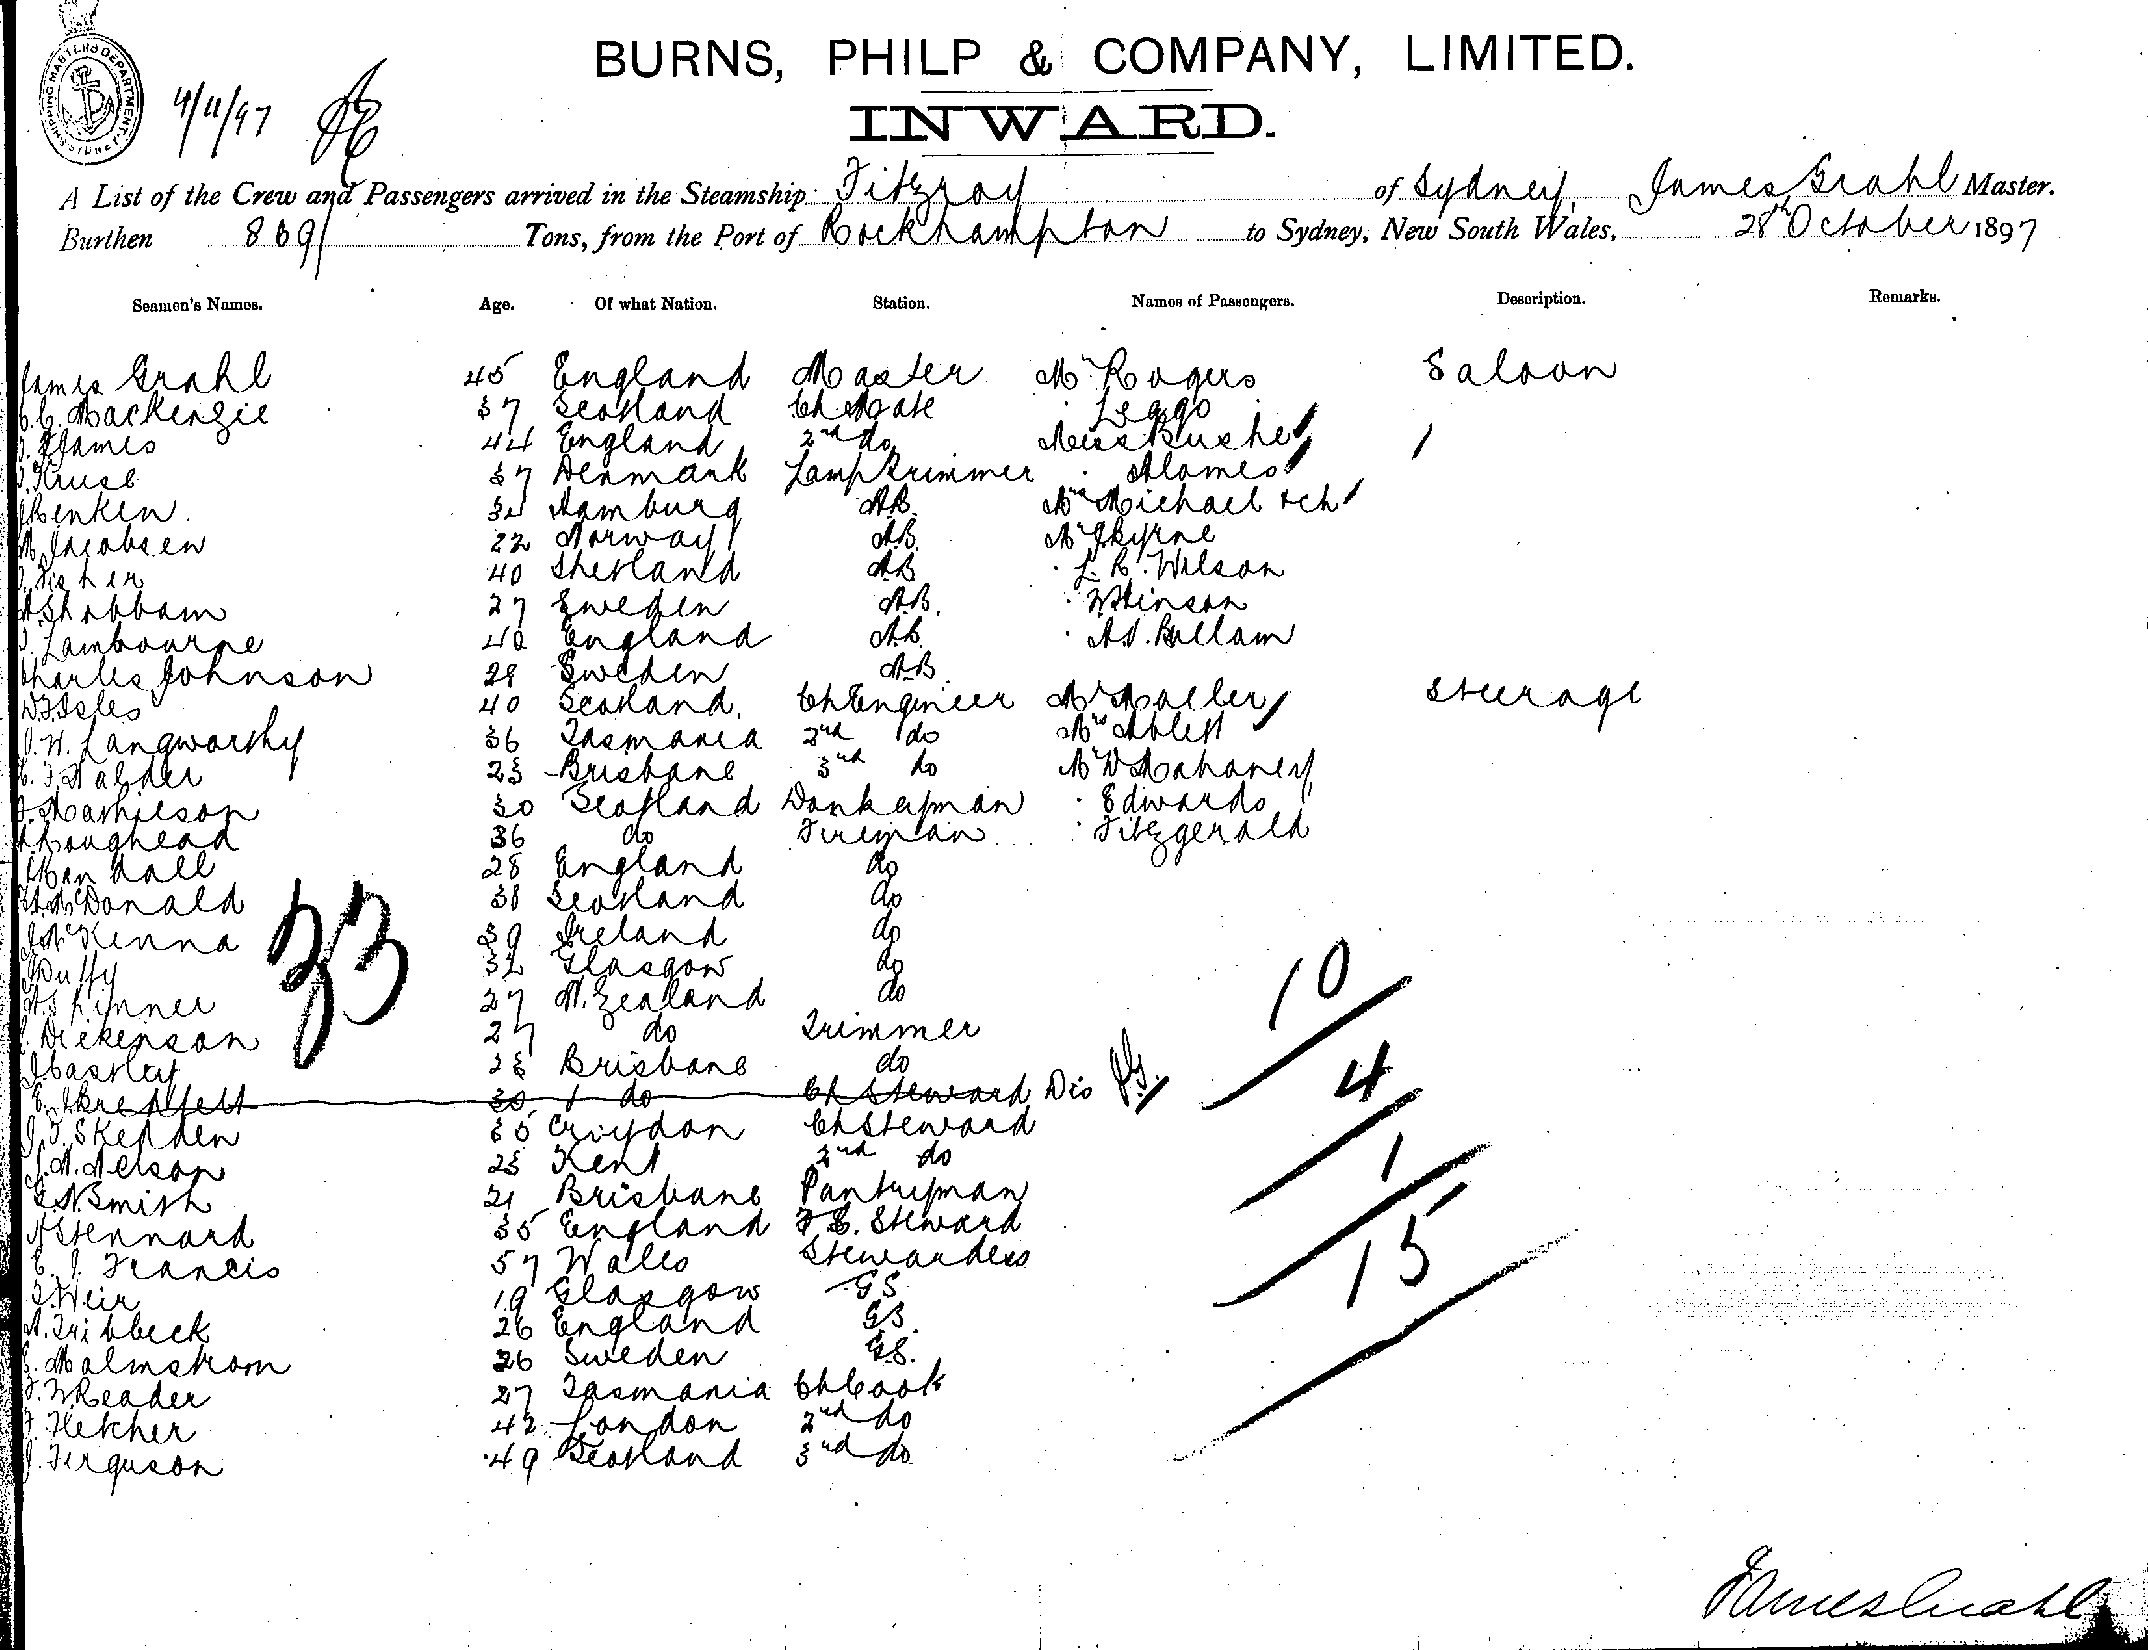 SHIPPING MASTERS DEPARTMENT SYDNEY
4/11/97
BURNS, PHILP & COMPANY, LIMITED.
INWARD.
A List of the Crew and Passengers arrived in the Steamship Fitzroy of Sydney, James Grahl Master.
Burthen 869 Tons, from the Port of Rockhampton to Sydney, New South Wales, 28th October 1897
Seamen's Names. Age. Of what Nation. Station. Names of Passengers. Description. Remarks.
James Grahl 45 England Master Mr Rogers Saloon
Mackenzie 37 Scotland Ch Mate Leggo
James 44 England 2nd do Miss Bushell
Kruse 37 Denmark Lamp Trimmer
Renken Hamburg AB. Mrs Michael & ch
Jacobsen 22 Norway AB. Mr Skyrne
Fisher 40 Shetland AB L. R. Wilson
27 Sweden AB.
Lambourne England AB.
Charles Johnson 28 Sweden AB.
Isles 40 Scotland. Ch Engineer Mr Moller Steerage
Langworthy 36 Tasmania 2nd do Mrs Ablett
23 Brisbane 3rd do Mr D Mahoney
Mathieson 30 Scotland Donkeyman Edwards
Loughead 36 do Fireman Fitzgerald
Randall 28 England do
McDonald 38 Scotland do
McKenna 39 Ireland do
Duffy 32 Glasgow do
Skinner 27 N. Zealand do
Dickenson 27 do Trimmer
Brisbane do
E. 30 do Ch Steward Dis JG.
J. T. Skedden 35 Croydon Ch Steward
Nelson 23 Kent 2nd do
Smith 21 Brisbane Pantryman
Stennard 35 England F. C. Steward
E. J. Francis 57 Wales Stewardess
Weir 19 Glasgow GS
A. Tribbeck 26 England GS.
Malmstrom 26 Sweden GS.
Reader 27 Tasmania Ch Cook
Fletcher 42 London 2nd do
J. Ferguson 49 Scotland 3rd do
33
10
4
1
15
James Grahl